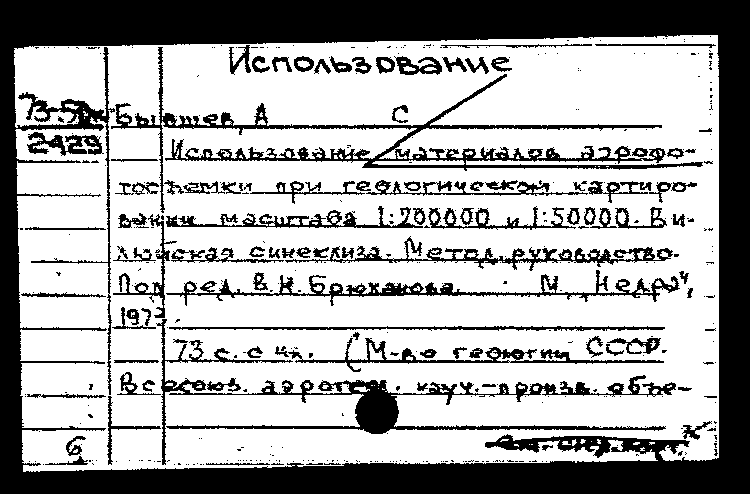 Использование
73-5
Бывшев, А С
2429
Использование материалов аэрофо-
тосъемки при геологической картиро-
вании масштаба 1:200000 и 1:50000. Ви-
люйская синеклиза. Метод. руководство.
Под ред. В.Н. Брюханова. М., "Недра",
1973.
73 с. с ил. (М-во геологии СССР.
Всесоюз. аэрогеол. науч.-произв. объе-
6